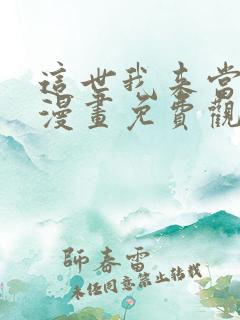 這世我來當
漫畫免費觀
師春雷
未经同意禁止转载